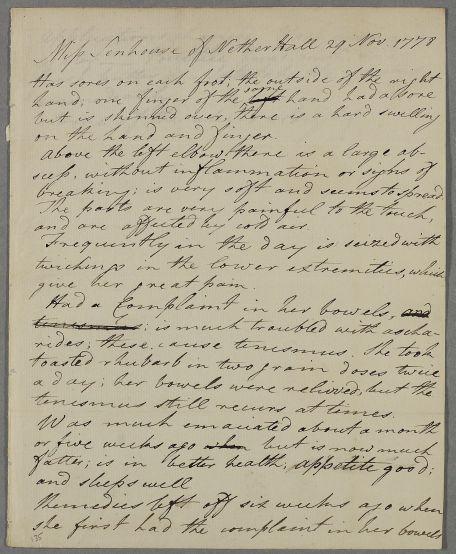 Miss Senhouse of Nether Hall 29 Nov. 1778
Has sores on each foot; the outside of the right
hand; one finger of the same hand had a sore
but is skinned over, there is a hard swelling
on the hand and finger.
Above the left elbow there is a large ab-
scess, without inflammation or signs of
breaking; is very soft and seems to spread
The parts are very painful to the touch,
and are affected by cold air.
Frequently in the day is seized with
twichings in the lower extremities, which
give her great pain.
Had a Complaint in her bowels, and
tenesmus; is much troubled with ascha-
rides; these cause tenesmus. She took
toasted rhubarb in two gram doses twice
a day; her bowels were relieved, but the
tenesmus still recurs at times.
Was much emaciated about a month
or five weeks ago when but is now much
fatter; is in better health; appetite good;
and sleeps well
Remedies left off six weeks ago when
she first had the complaint in her bowels
135